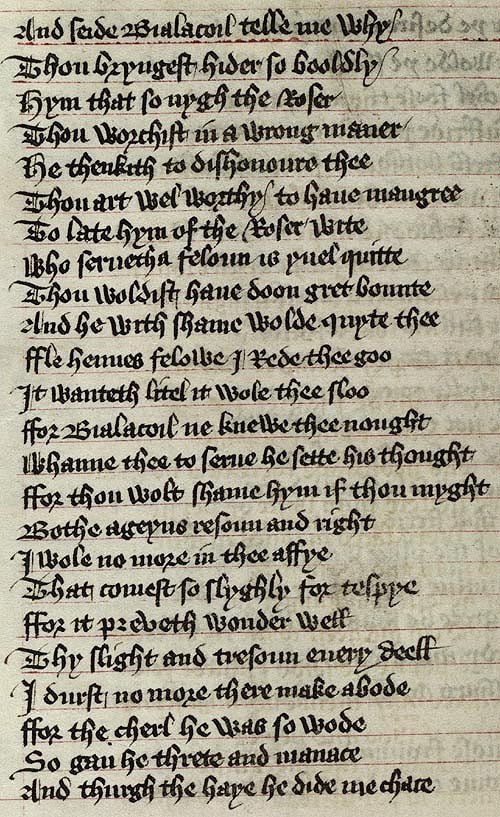 And seide Bialacoil telle me why/
Thou bryngest hider so booldly/
Hym that so nygh the Roser
Thou worchist in a wrong maner
He thenkith to dishonoure thee
Thou art wel worthy/ to haue maugree
To late hym of the Roser wite
Who serueth a feloun is yuel quitte
Thou woldist haue doon gret bounte
And he with shame wolde quyte thee
ffle hennes felowe I Rede thee goo
It wanteth litel it wole thee sloo
ffor Bialacoil ne knewe thee nought
Whanne thee to serue he sette his thought
ffor thou wolt shame hym if thou myght
Bothe ageyns resoun and right
I wole no more in thee affye
That comest so slyghly for tespye
ffor it preveth wonder well
Thy slight and tresoun euery deell
I durst no more there make abode
ffor the cherl he was so wode
So gan he threte and manace
And thurgh the haye he dide me chace